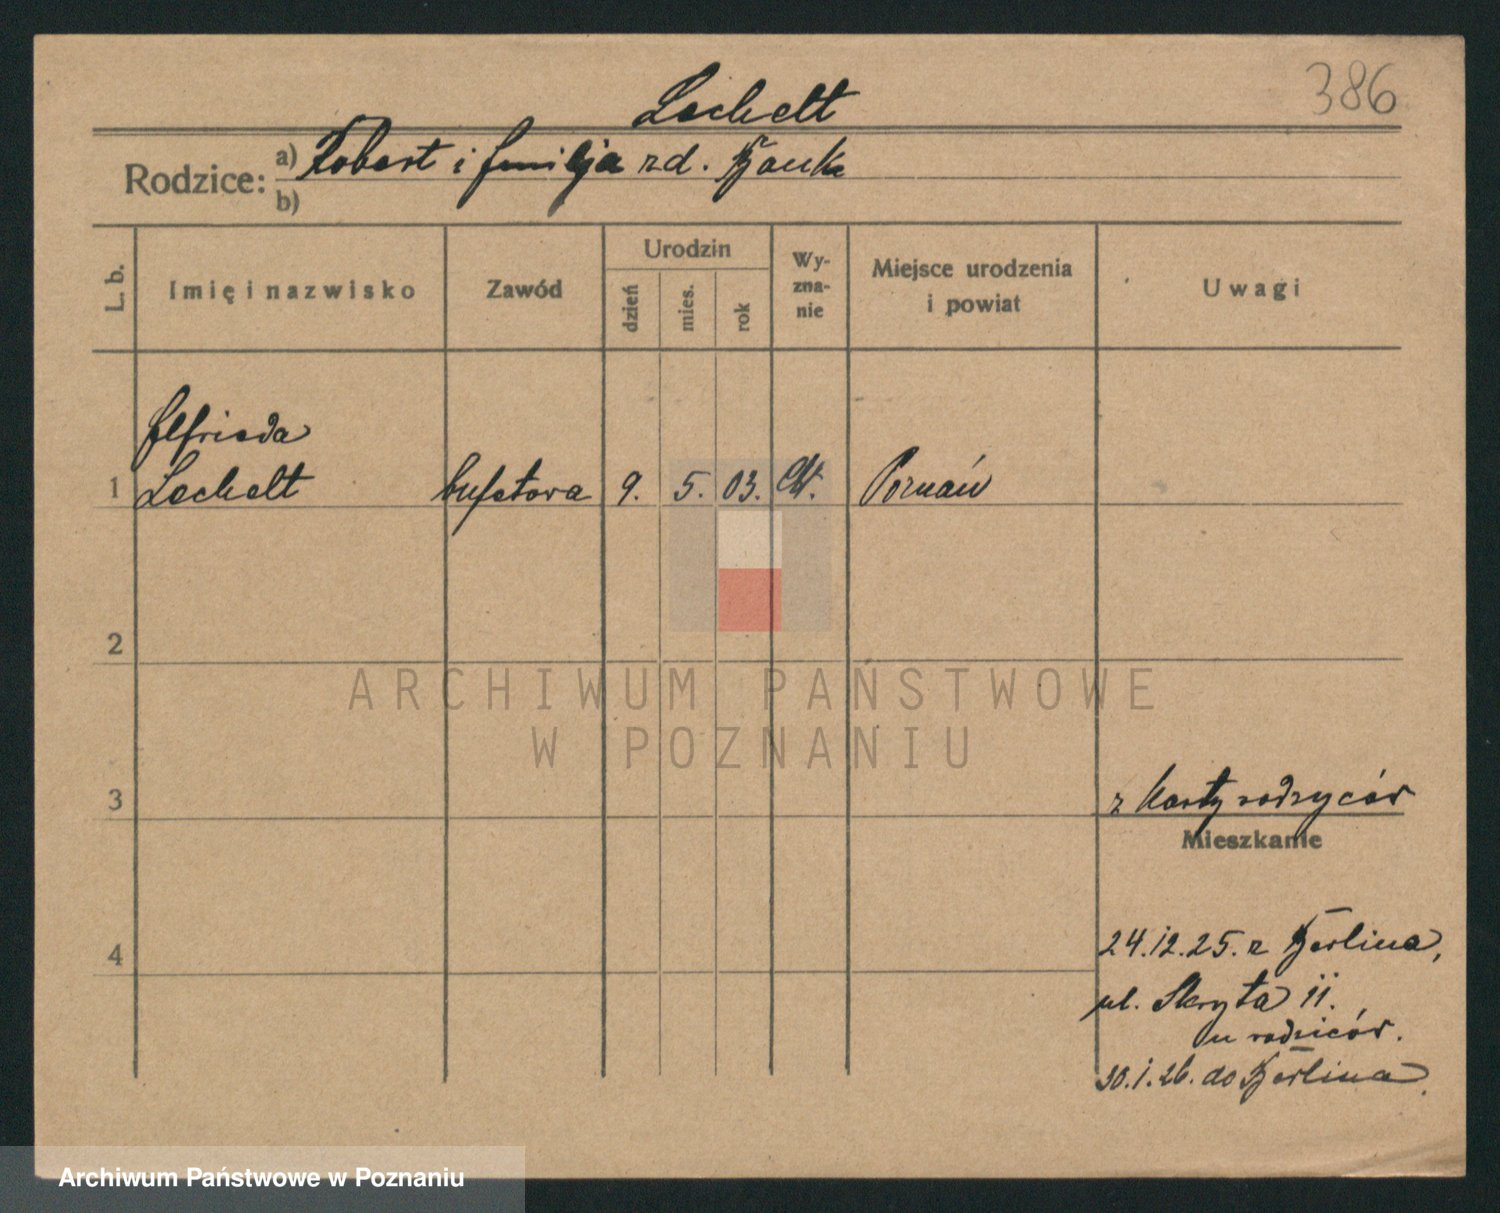 386
Lechelt
Rodzice: a) Robert i Emilja zd. Bauk
b)
L. b.
Imię i nazwisko
Zawód
Urodzin
dzień
mies.
rok
Wy-
zna-
nie
Miejsce urodzenia
i powiat
Uwagi
Elfrieda
1 Lechelt bufetowa 9. 5. 03. ew. Poznań
2
ARCHIWUM PAŃSTWOWE
W POZNANIU
3
z karty rodzyców
Mieszkanie
4
24.12.25. z Berlina,
ul. Skryta 11.
u rodziców.
30.1.26. do Berlina.
Archiwum Państwowe w Poznaniu